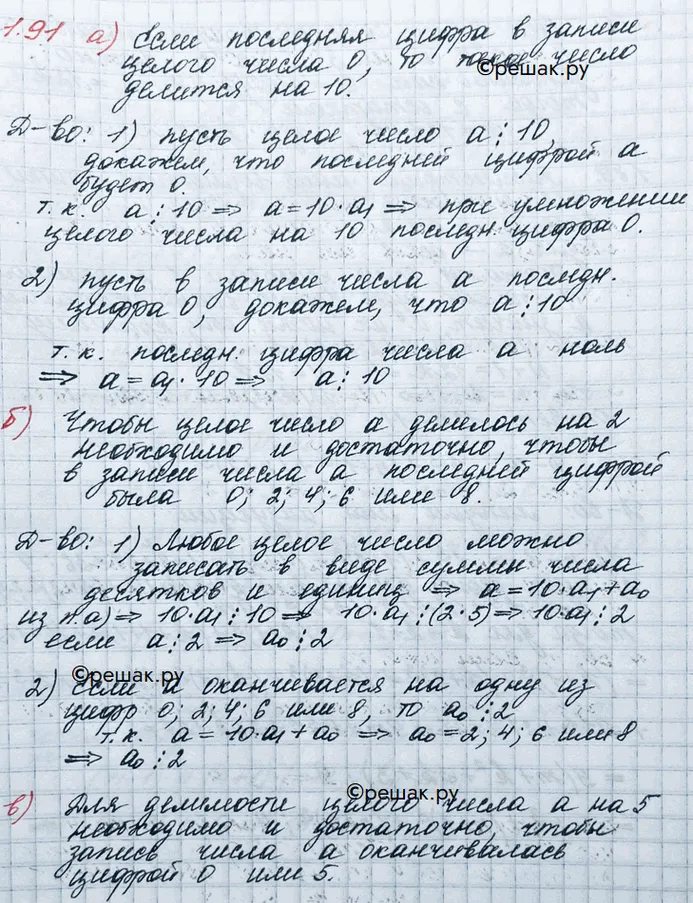 1.91 а) Если последняя цифра в записи
целого числа 0, то такое число
©решак.ру
делится на 10.
Д-во: 1) пусть целое число a⋮10,
докажем, что последней цифрой a
будет 0.
т.к. a⋮10 ⇒ a=10·a₁ ⇒ при умножении
целого числа на 10 последн. цифра 0.
2) пусть в записи числа a последн.
цифра 0, докажем, что a⋮10
т.к. последн. цифра числа a ноль
⇒ a=a₁·10 ⇒ a⋮10
б) Чтобы целое число a делилось на 2
необходимо и достаточно, чтобы
в записи числа a последней цифрой
была 0; 2; 4; 6 или 8.
Д-во: 1) Любое целое число можно
записать в виде суммы числа
десятков и единиц ⇒ a=10·a₁+a₀
из п.а) ⇒ 10·a₁⋮10 ⇒ 10·a₁⋮(2·5) ⇒ 10·a₁⋮2
если a⋮2 ⇒ a₀⋮2
©решак.ру
2) Если a оканчивается на одну из
цифр 0; 2; 4; 6 или 8, то a₀⋮2
т.к. a=10·a₁+a₀ ⇒ a₀=2; 4; 6 или 8
⇒ a₀⋮2
©решак.ру
в) Для делимости целого числа a на 5
необходимо и достаточно, чтобы
запись числа a оканчивалась
цифрой 0 или 5.